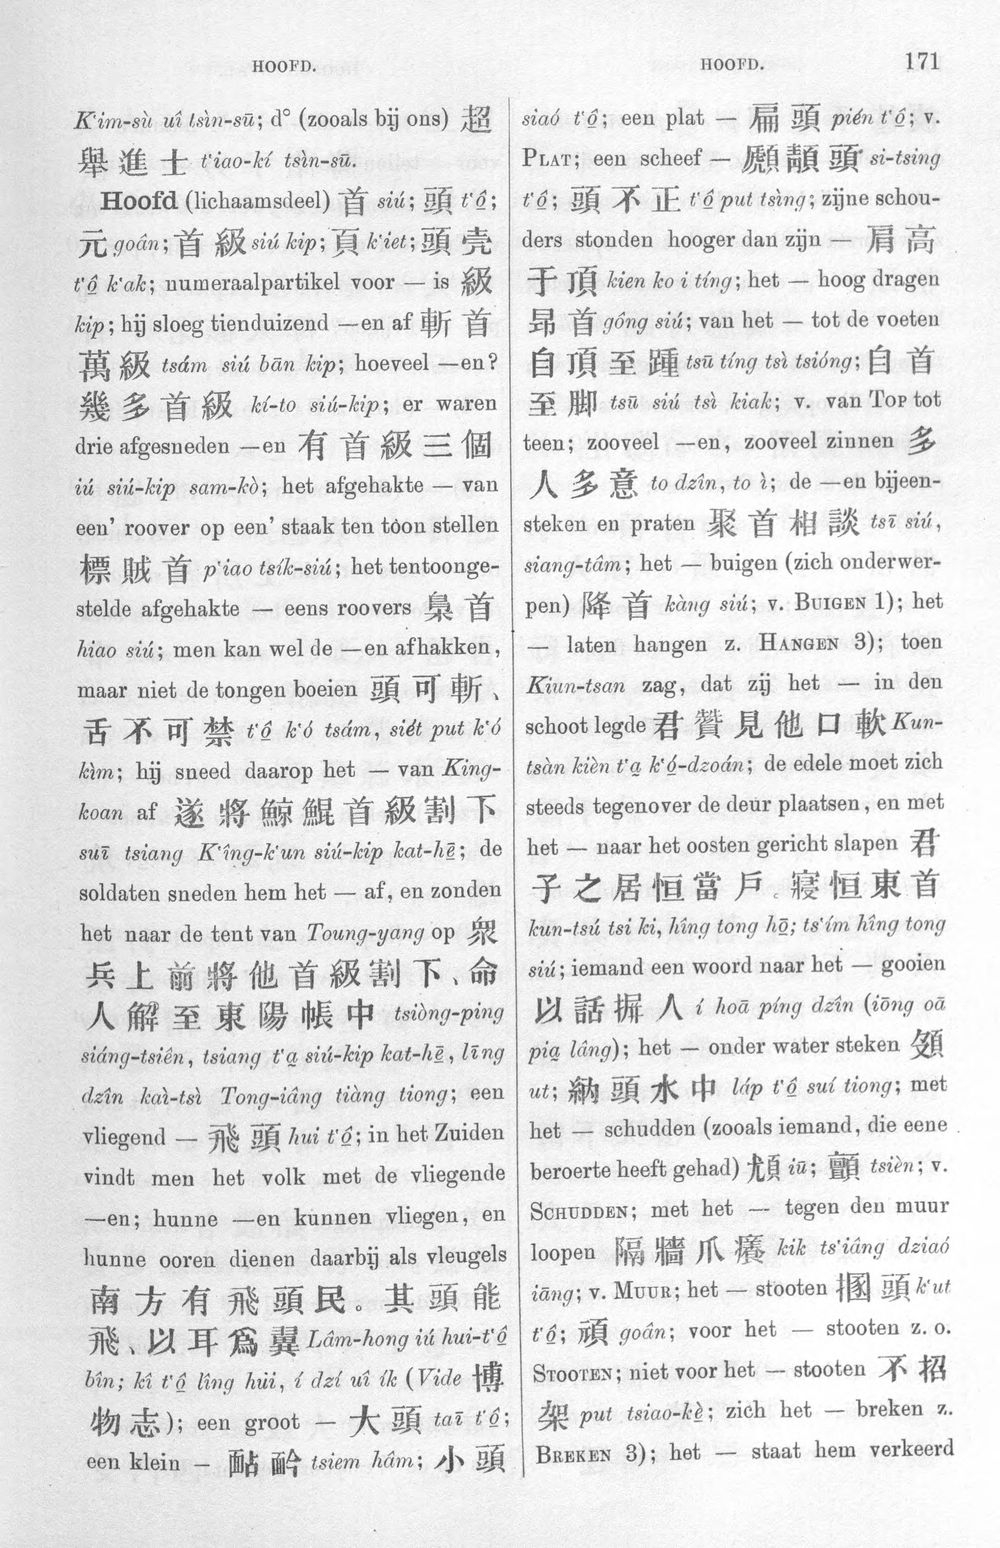 HOOFD.
HOOFD. 171
K‘im-sù uî tsìn-sū; d° (zooals bij ons) 超
舉進士 t‘iao-kí tsìn-sū.
Hoofd (lichaamsdeel) 首 siú; 頭 t‘ô̤;
元 goân; 首級 siú kip; 頁 k‘iet; 頭壳
t‘ô̤ k‘ak; numeraalpartikel voor — is 級
kip; hij sloeg tienduizend —en af 斬首
萬級 tsám siú bān kip; hoeveel —en?
幾多首級 kí-to siú-kip; er waren
drie afgesneden —en 有首級三個
iú siú-kip sam-kò; het afgehakte — van
een’ roover op een’ staak ten toon stellen
標賊首 p‘iao tsík-siú; het tentoonge-
stelde afgehakte — eens roovers 梟首
hiao siú; men kan wel de —en afhakken,
maar niet de tongen boeien 頭可斬、
舌不可禁 t‘ô̤ k‘ó tsám, siét put k‘ó
kìm; hij sneed daarop het — van King-
koan af 遂將鯨鯤首級割下
suī tsiang K‘îng-k‘un siú-kip kat-hē̤; de
soldaten sneden hem het — af, en zonden
het naar de tent van Toung-yang op 衆
兵上前將他首級割下、命
人解至東陽帳中 tsiòng-ping
siáng-tsiên, tsiang t‘a̤ siú-kip kat-hē̤, līng
dzîn kaì-tsì Tong-iâng tiàng tiong; een
vliegend — 飛頭 hui t‘ô̤; in het Zuiden
vindt men het volk met de vliegende
—en; hunne —en kunnen vliegen, en
hunne ooren dienen daarbij als vleugels
南方有飛頭民。其頭能
飛、以耳爲翼 Lâm-hong iú hui-t‘ô̤
bîn; kî t‘ô̤ lîng hui, í dzí uî ík (Vide 博
物志); een groot — 大頭 taī t‘ô̤;
een klein — tsiem hâm; 小頭
siaó t‘ô̤; een plat — 扁頭 pién t‘ô̤; v.
PLAT; een scheef — si-tsing
t‘ô̤; 頭不正 t‘ô̤ put tsìng; zijne schou-
ders stonden hooger dan zijn — 肩高
于頂 kien ko i tíng; het — hoog dragen
昂首 gông siú; van het — tot de voeten
自頂至踵 tsū tíng tsì tsióng; 自首
至脚 tsū siú tsì kiak; v. van TOP tot
teen; zooveel —en, zooveel zinnen 多
人多意 to dzîn, to ì; de —en bijeen-
steken en praten 聚首相談 tsī siú,
siang-tâm; het — buigen (zich onderwer-
pen) 降首 kàng siú; v. BUIGEN 1); het
— laten hangen z. HANGEN 3); toen
Kiun-tsan zag, dat zij het — in den
schoot legde 君贊見他口軟 Kun-
tsàn kièn t‘a̤ k‘ó̤-dzoán; de edele moet zich
steeds tegenover de deur plaatsen, en met
het — naar het oosten gericht slapen 君
子之居恒當戶。寢恒東首
kun-tsú tsi ki, hîng tong hō̤; ts‘ím hîng tong
siú; iemand een woord naar het — gooien
以話摒人 í hoā píng dzîn (iōng oā
pia̤ lâng); het — onder water steken 頞
ut; 納頭水中 láp t‘ô̤ suí tiong; met
het — schudden (zooals iemand, die eene
beroerte heeft gehad) 頄 iū; 顫 tsièn; v.
SCHUDDEN; met het — tegen den muur
loopen 隔牆爪癢 kik ts‘iâng dziaó
iāng; v. MUUR; het — stooten 頭 k‘ut
t‘ô̤; 頑 goân; voor het — stooten z. o.
STOOTEN; niet voor het — stooten 不招
架 put tsiao-kè̤; zich het — breken z.
BREKEN 3); het — staat hem verkeerd